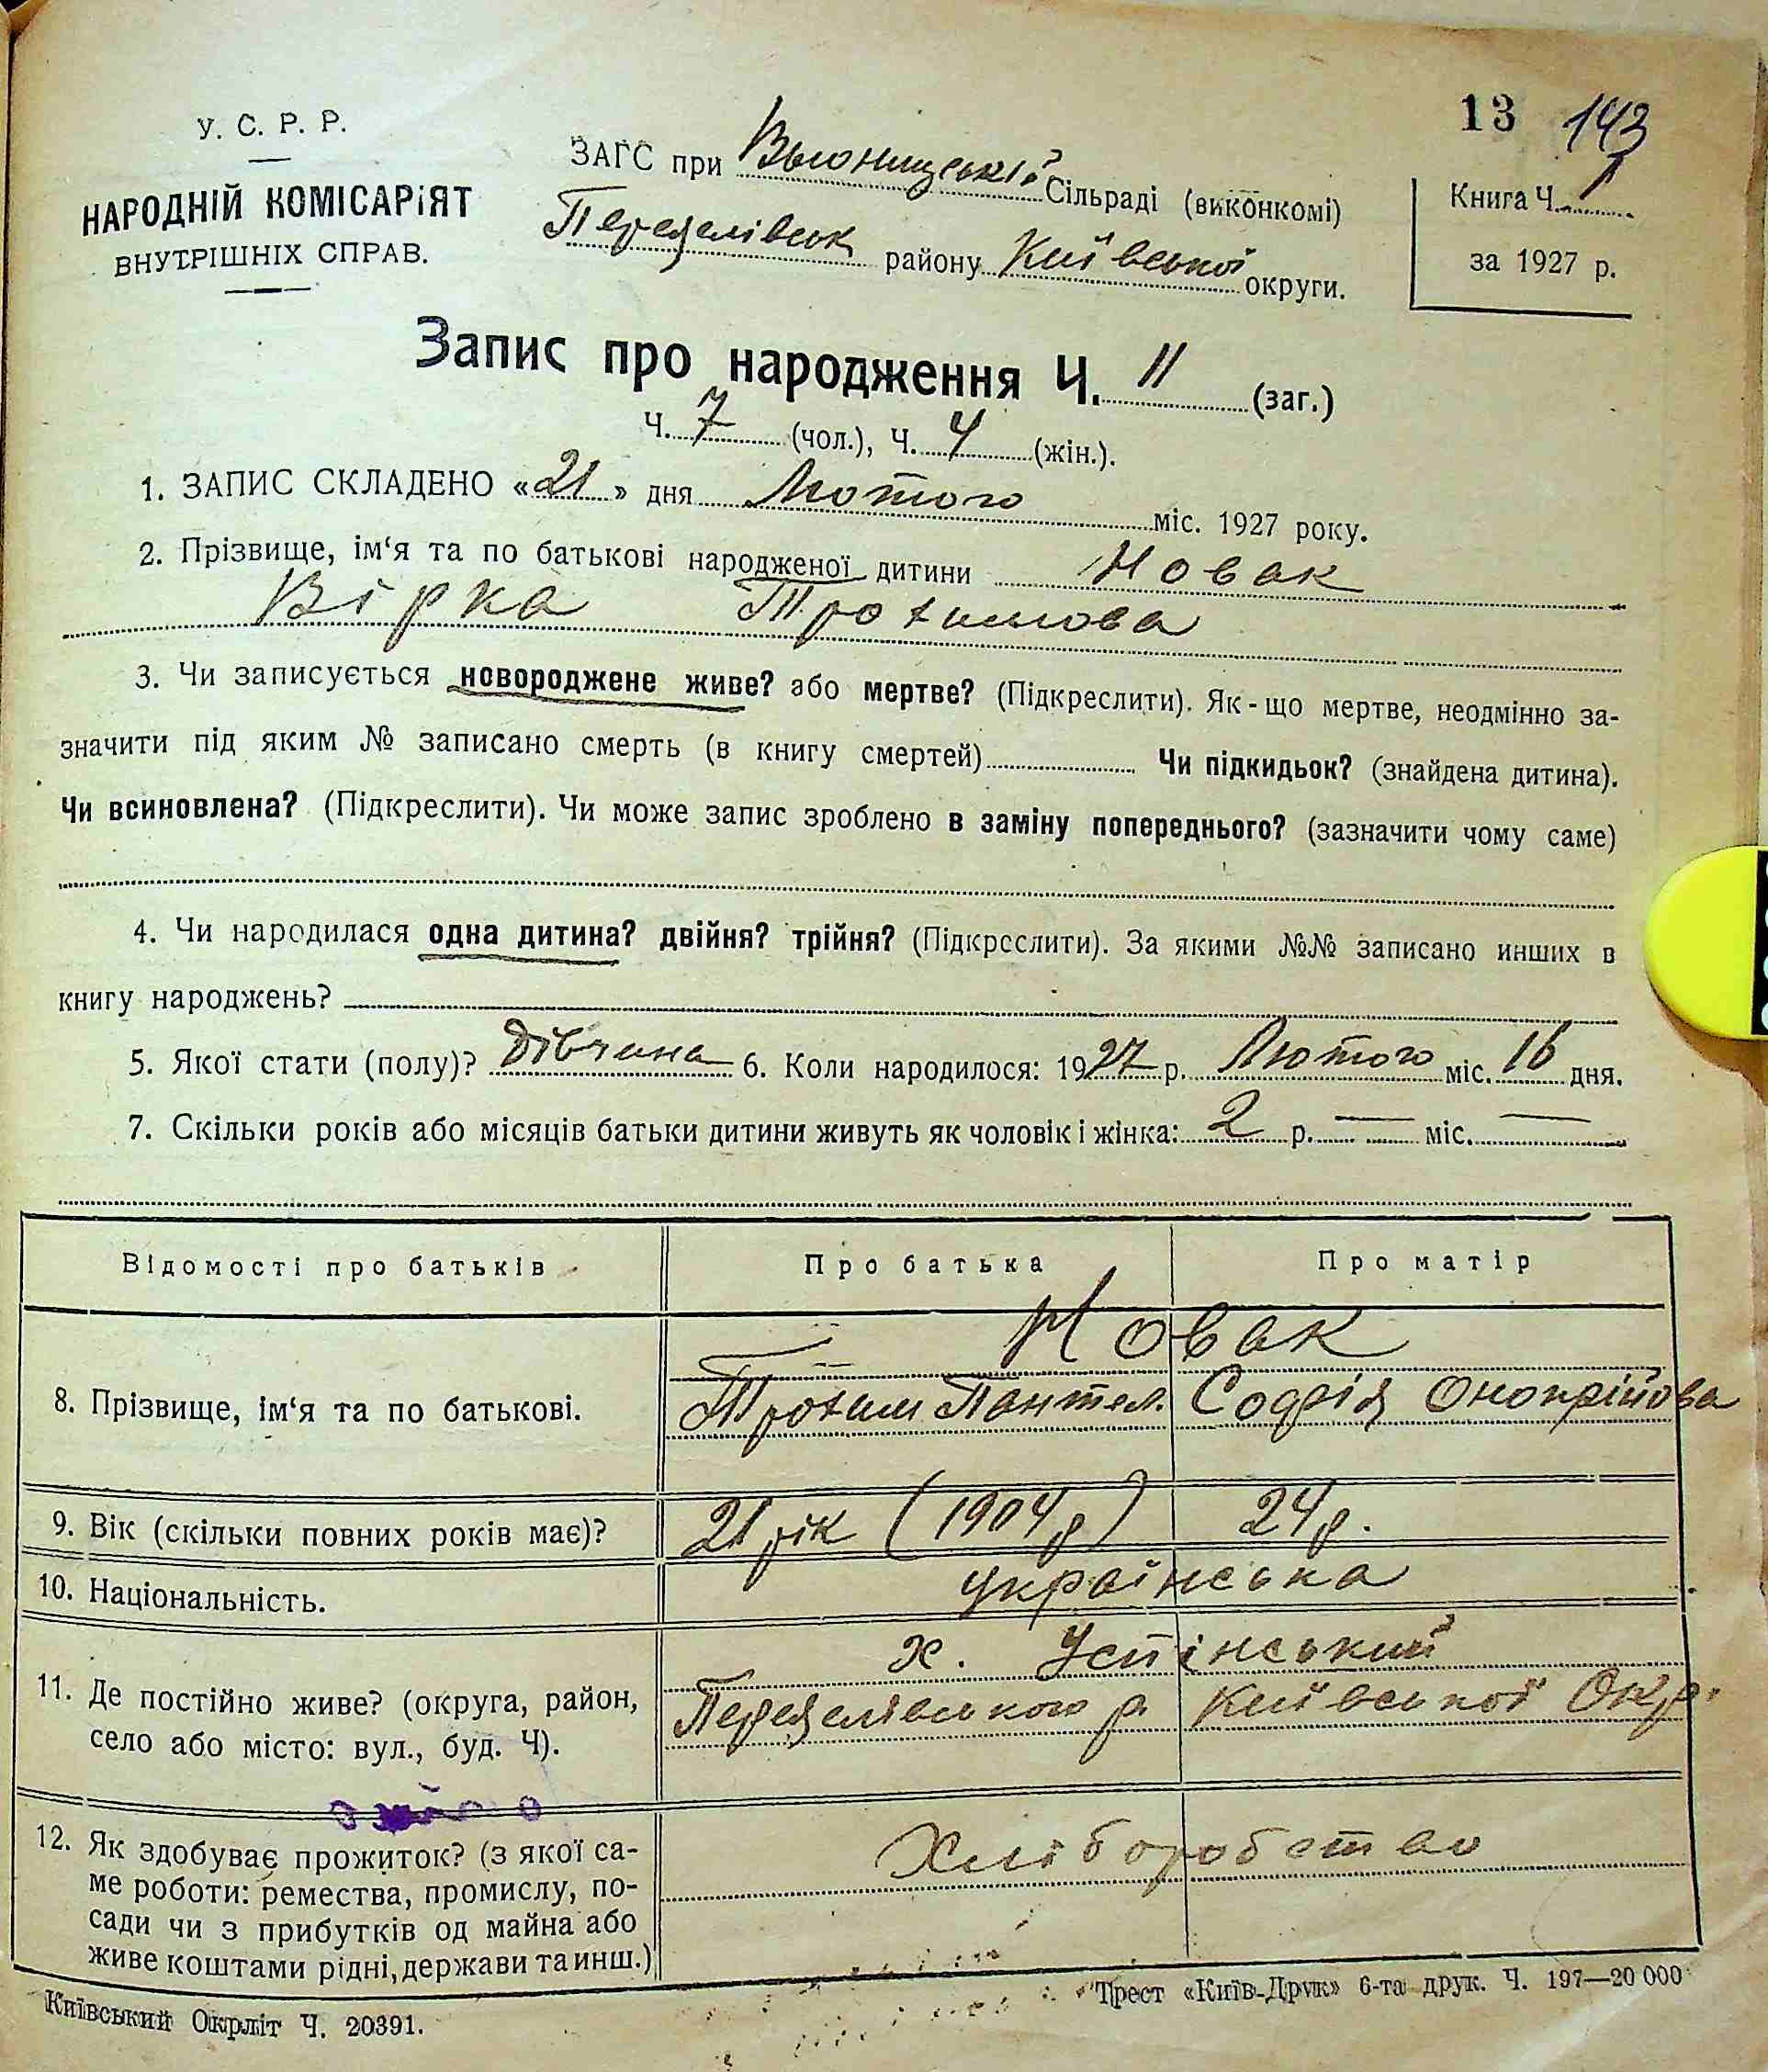 13 143
У. С. Р. Р.
НАРОДНІЙ КОМІСАРІЯТ
ВНУТРІШНІХ СПРАВ.
ЗАГС при Вьюнищеській Сільраді (виконкомі)
району Київської округи.
Книга Ч. 1
за 1927 р.
Запис про народження Ч. 11 (заг.)
Ч. 7 (чол.), Ч. 4 (жін.).
1. ЗАПИС СКЛАДЕНО «21» дня Лютого міс. 1927 року.
2. Прізвище, ім‘я та по батькові народженої дитини Новак
Вірка Трохимова
3. Чи записується новороджене живе? або мертве? (Підкреслити). Як-що мертве, неодмінно за-
значити під яким № записано смерть (в книгу смертей) Чи підкидьок? (знайдена дитина).
Чи всиновлена? (Підкреслити). Чи може запис зроблено в заміну попереднього? (зазначити чому саме)
4. Чи народилася одна дитина? двійня? трійня? (Підкреслити). За якими №№ записано инших в
книгу народжень?
5. Якої стати (полу)? Дівчина 6. Коли народилося: 1927 р. Лютого міс. 16 дня.
7. Скільки років або місяців батьки дитини живуть як чоловік і жінка: 2 р. — міс. —
Відомості про батьків Про батька Про матір
Новак
8. Прізвище, ім‘я та по батькові. Трохим Пантел. Софія Онопрійова
9. Вік (скільки повних років має)? 21 рік (1904 р) 24 р.
10. Національність. українська
х. Успінський
11. Де постійно живе? (округа, район, Київської Окр.
село або місто: вул., буд. Ч).
12. Як здобуває прожиток? (з якої са- Хліборобство
ме роботи: ремества, промислу, по-
сади чи з прибутків од майна або
живе коштами рідні, держави та инш.)
Київський Окрліт Ч. 20391.
Трест «Київ-Друк» 6-та друк. Ч. 197—20 000